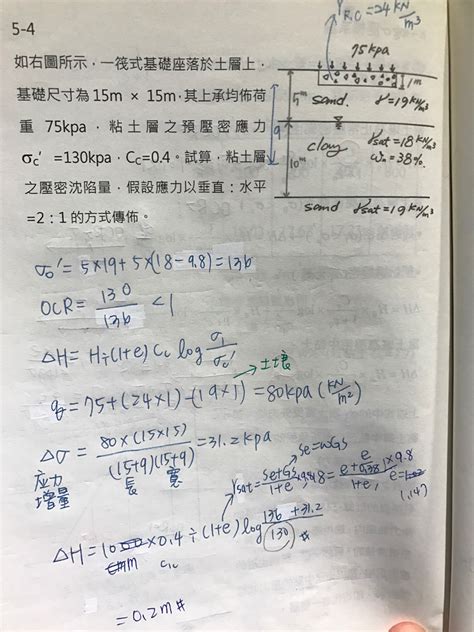 γR.C =24 kN/m³
5-4
如右圖所示，一筏式基礎座落於土層上，
基礎尺寸為 15m × 15m，其上承均佈荷
重 75kpa，粘土層之預壓密應力
σc′ =130kpa，Cc=0.4。試算，粘土層
之壓密沈陷量，假設應力以垂直：水平
=2：1 的方式傳佈。
75kpa
1m
5m
sand.
γ=19kN/m³
9
10m
clay
γsat=18kN/m³
ω=38%
sand
γsat=19kN/m³
σo′=5×19+5×(18-9.8)=136
OCR=130/136 <1
ΔH=H÷(1+e) Cc log σ1/σo′
→土壤
q=75+(24×1)-(19×1)=80kpa (kN/m²)
Δσ=80×(15×15)/(15+9)(15+9)=31.2kpa
長 寬
應力
增量
Se=ωGs
γsat=Se+Gs/1+e
e=
(1.14)
ΔH=10×0.4÷(1+e)log 136+31.2/130 #
Cc
=0.2m#